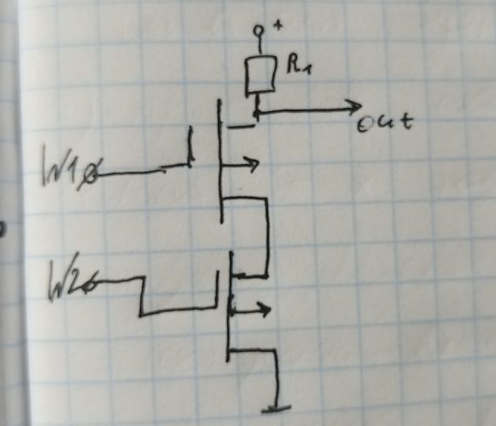 +
R1
out
W1
W2